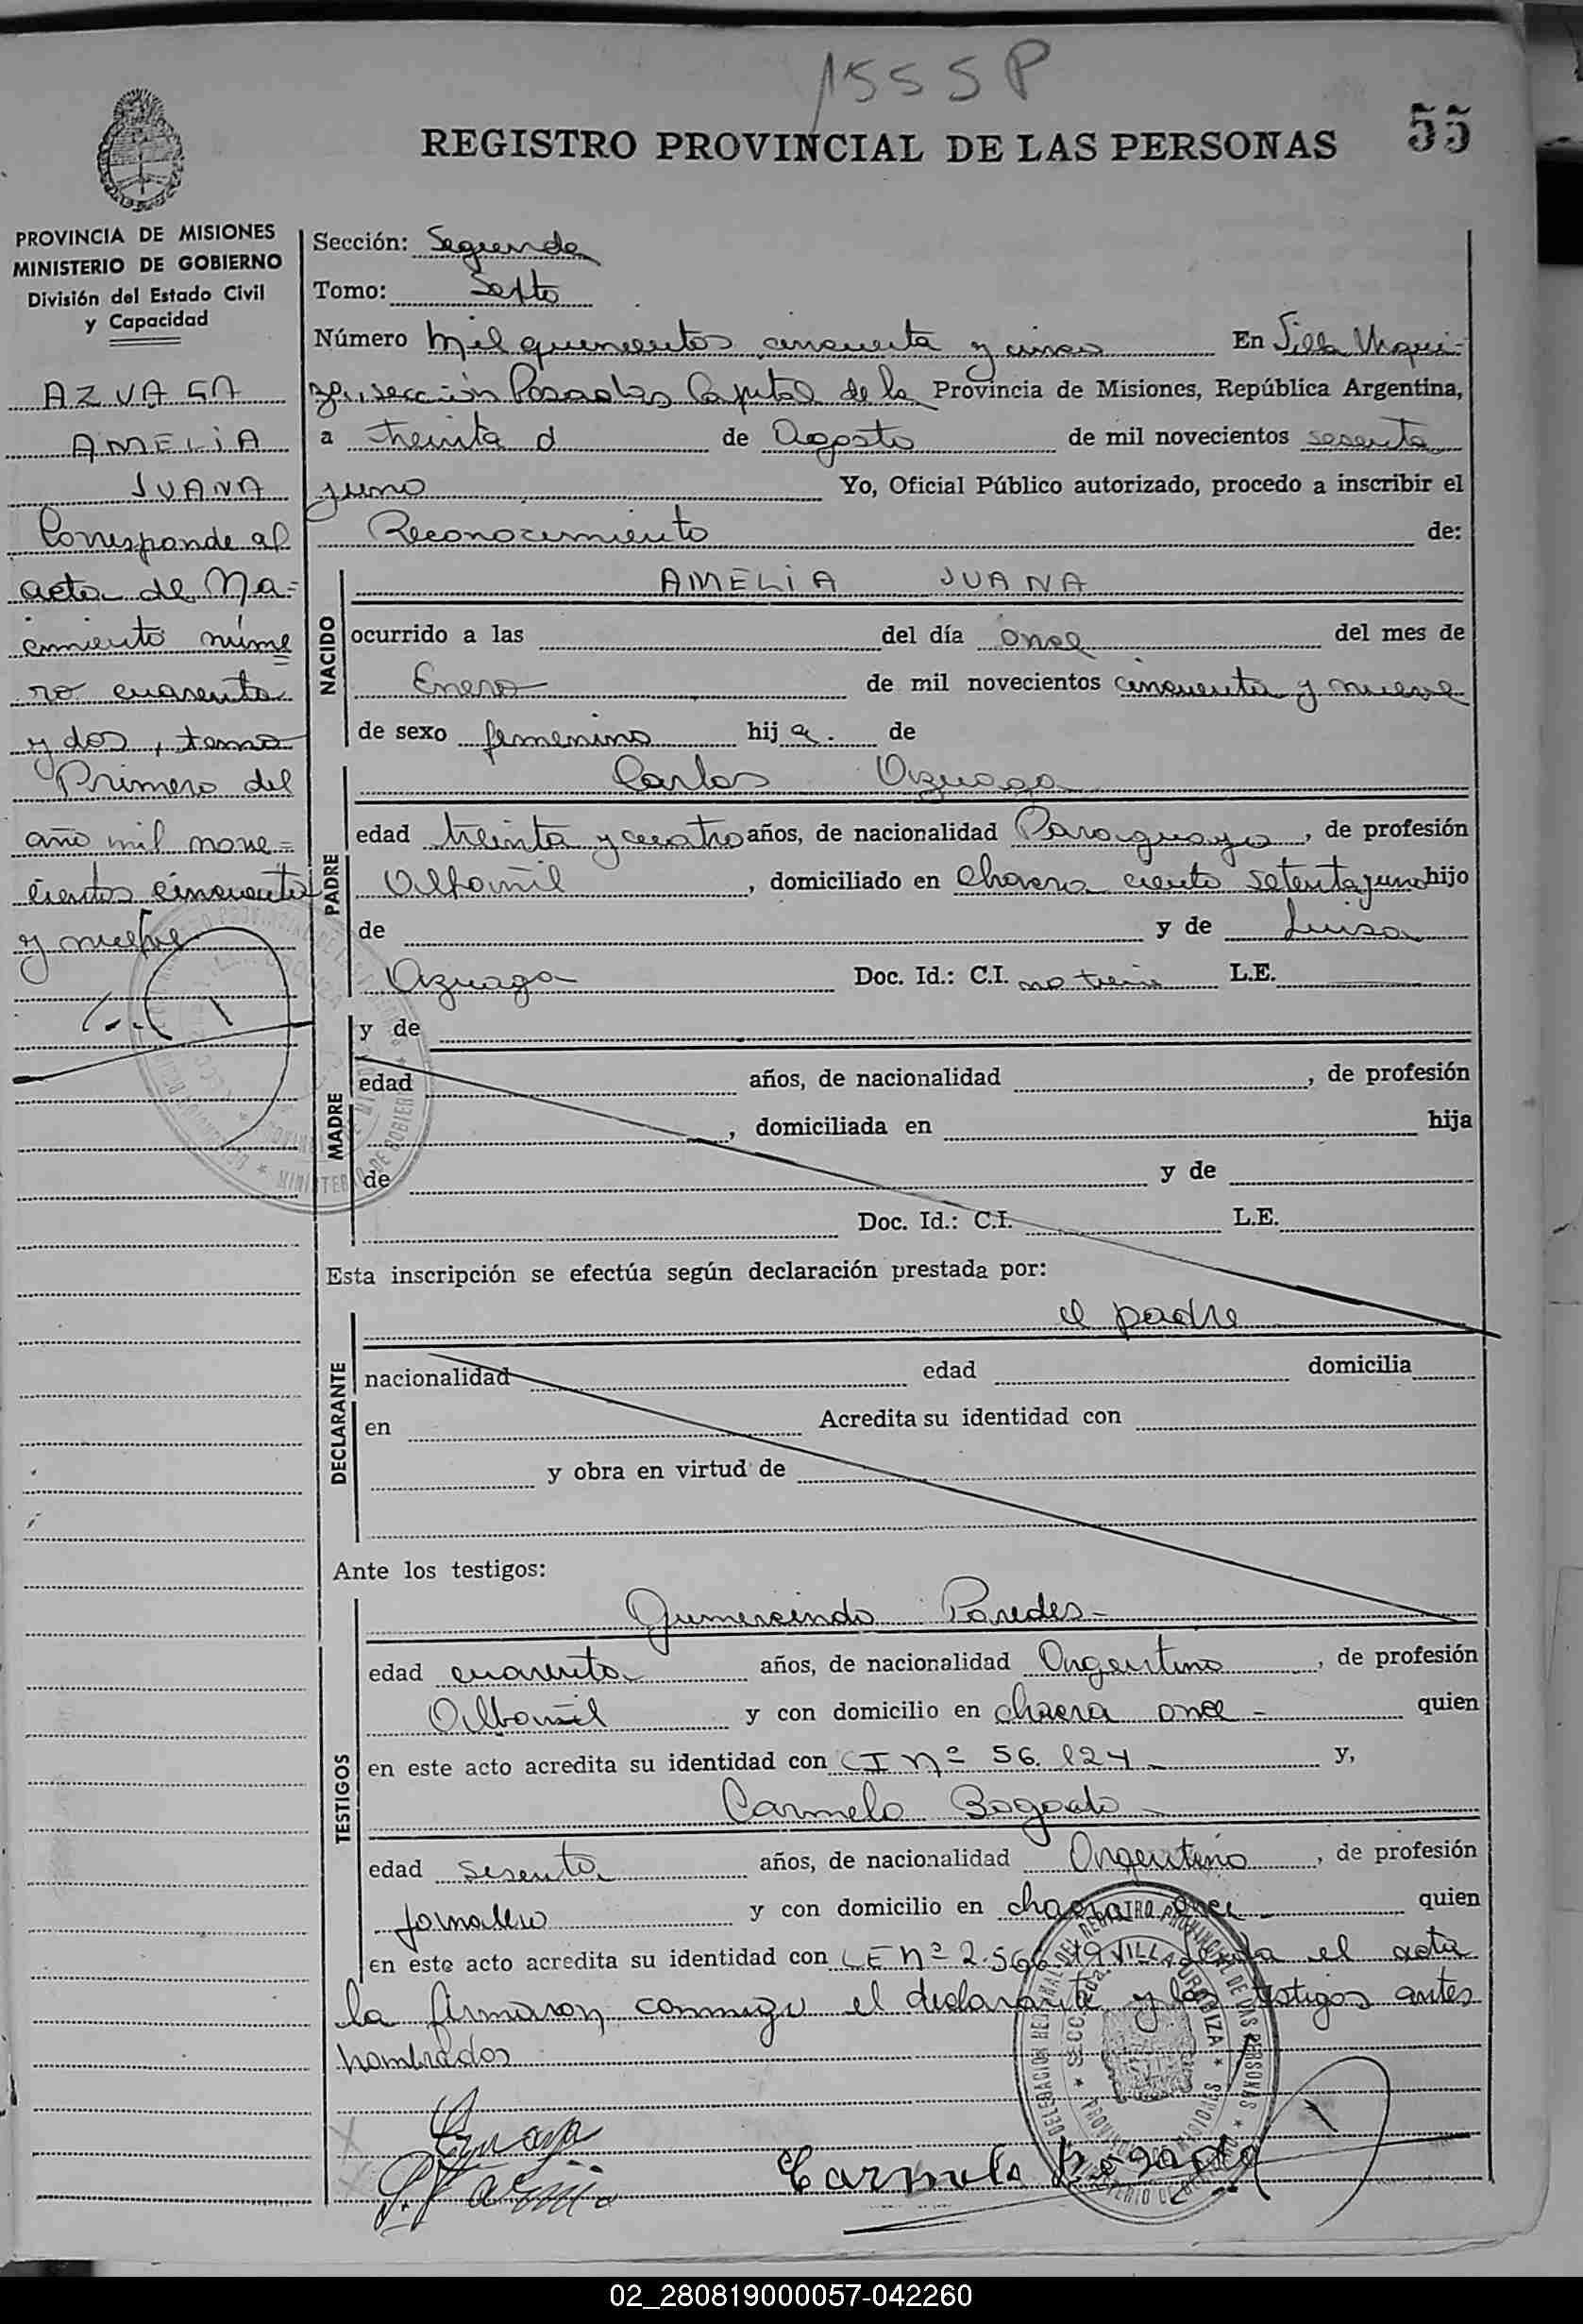 1555P
REGISTRO PROVINCIAL DE LAS PERSONAS 55
PROVINCIA DE MISIONES
MINISTERIO DE GOBIERNO
División del Estado Civil
y Capacidad
AZUAGA
AMELIA
JUANA
Corresponde al
acta de Na=
cimiento núme
ro cuarenta
y dos, tomo
Primero del
año mil nove=
cientos cincuenta
y nueve
Sección: Segunda
Tomo: Sexto
Número mil quinientos cincuenta y cinco En Villa Urqui-
za, sección Posadas Capital de la Provincia de Misiones, República Argentina,
a treinta de Agosto de mil novecientos sesenta
y uno Yo, Oficial Público autorizado, procedo a inscribir el
Reconocimiento de:
NACIDO
AMELIA JUANA
ocurrido a las del día once del mes de
Enero de mil novecientos cincuenta y nueve
de sexo femenino hija. de
PADRE
Carlos Azuaga
edad treinta y cuatro años, de nacionalidad Paraguaya, de profesión
Albañil, domiciliado en Chacra ciento setenta y uno hijo
de y de Luisa
Azuaga Doc. Id.: C.I. no tiene L.E.
MADRE
y de
edad años, de nacionalidad , de profesión
, domiciliada en hija
de y de
Doc. Id.: C.I. L.E.
Esta inscripción se efectúa según declaración prestada por:
DECLARANTE
el padre
nacionalidad edad domicilia
en Acredita su identidad con
y obra en virtud de
Ante los testigos:
TESTIGOS
Gumersindo Paredes-
edad cuarenta años, de nacionalidad Argentino, de profesión
Albañil y con domicilio en chacra once - quien
en este acto acredita su identidad con CI Nº 56.124 - y,
Carmelo Bogado -
edad sesenta años, de nacionalidad Argentino, de profesión
jornalero y con domicilio en chacra once - quien
en este acto acredita su identidad con LE nº 2.566. el acta
la firmaron conmigo el declarante y los testigos antes
nombrados
DELEGACION REGIONAL DEL REGISTRO PROVINCIAL DE LAS PERSONAS
VILLA URQUIZA
Carmelo Bogado
02_280819000057-042260